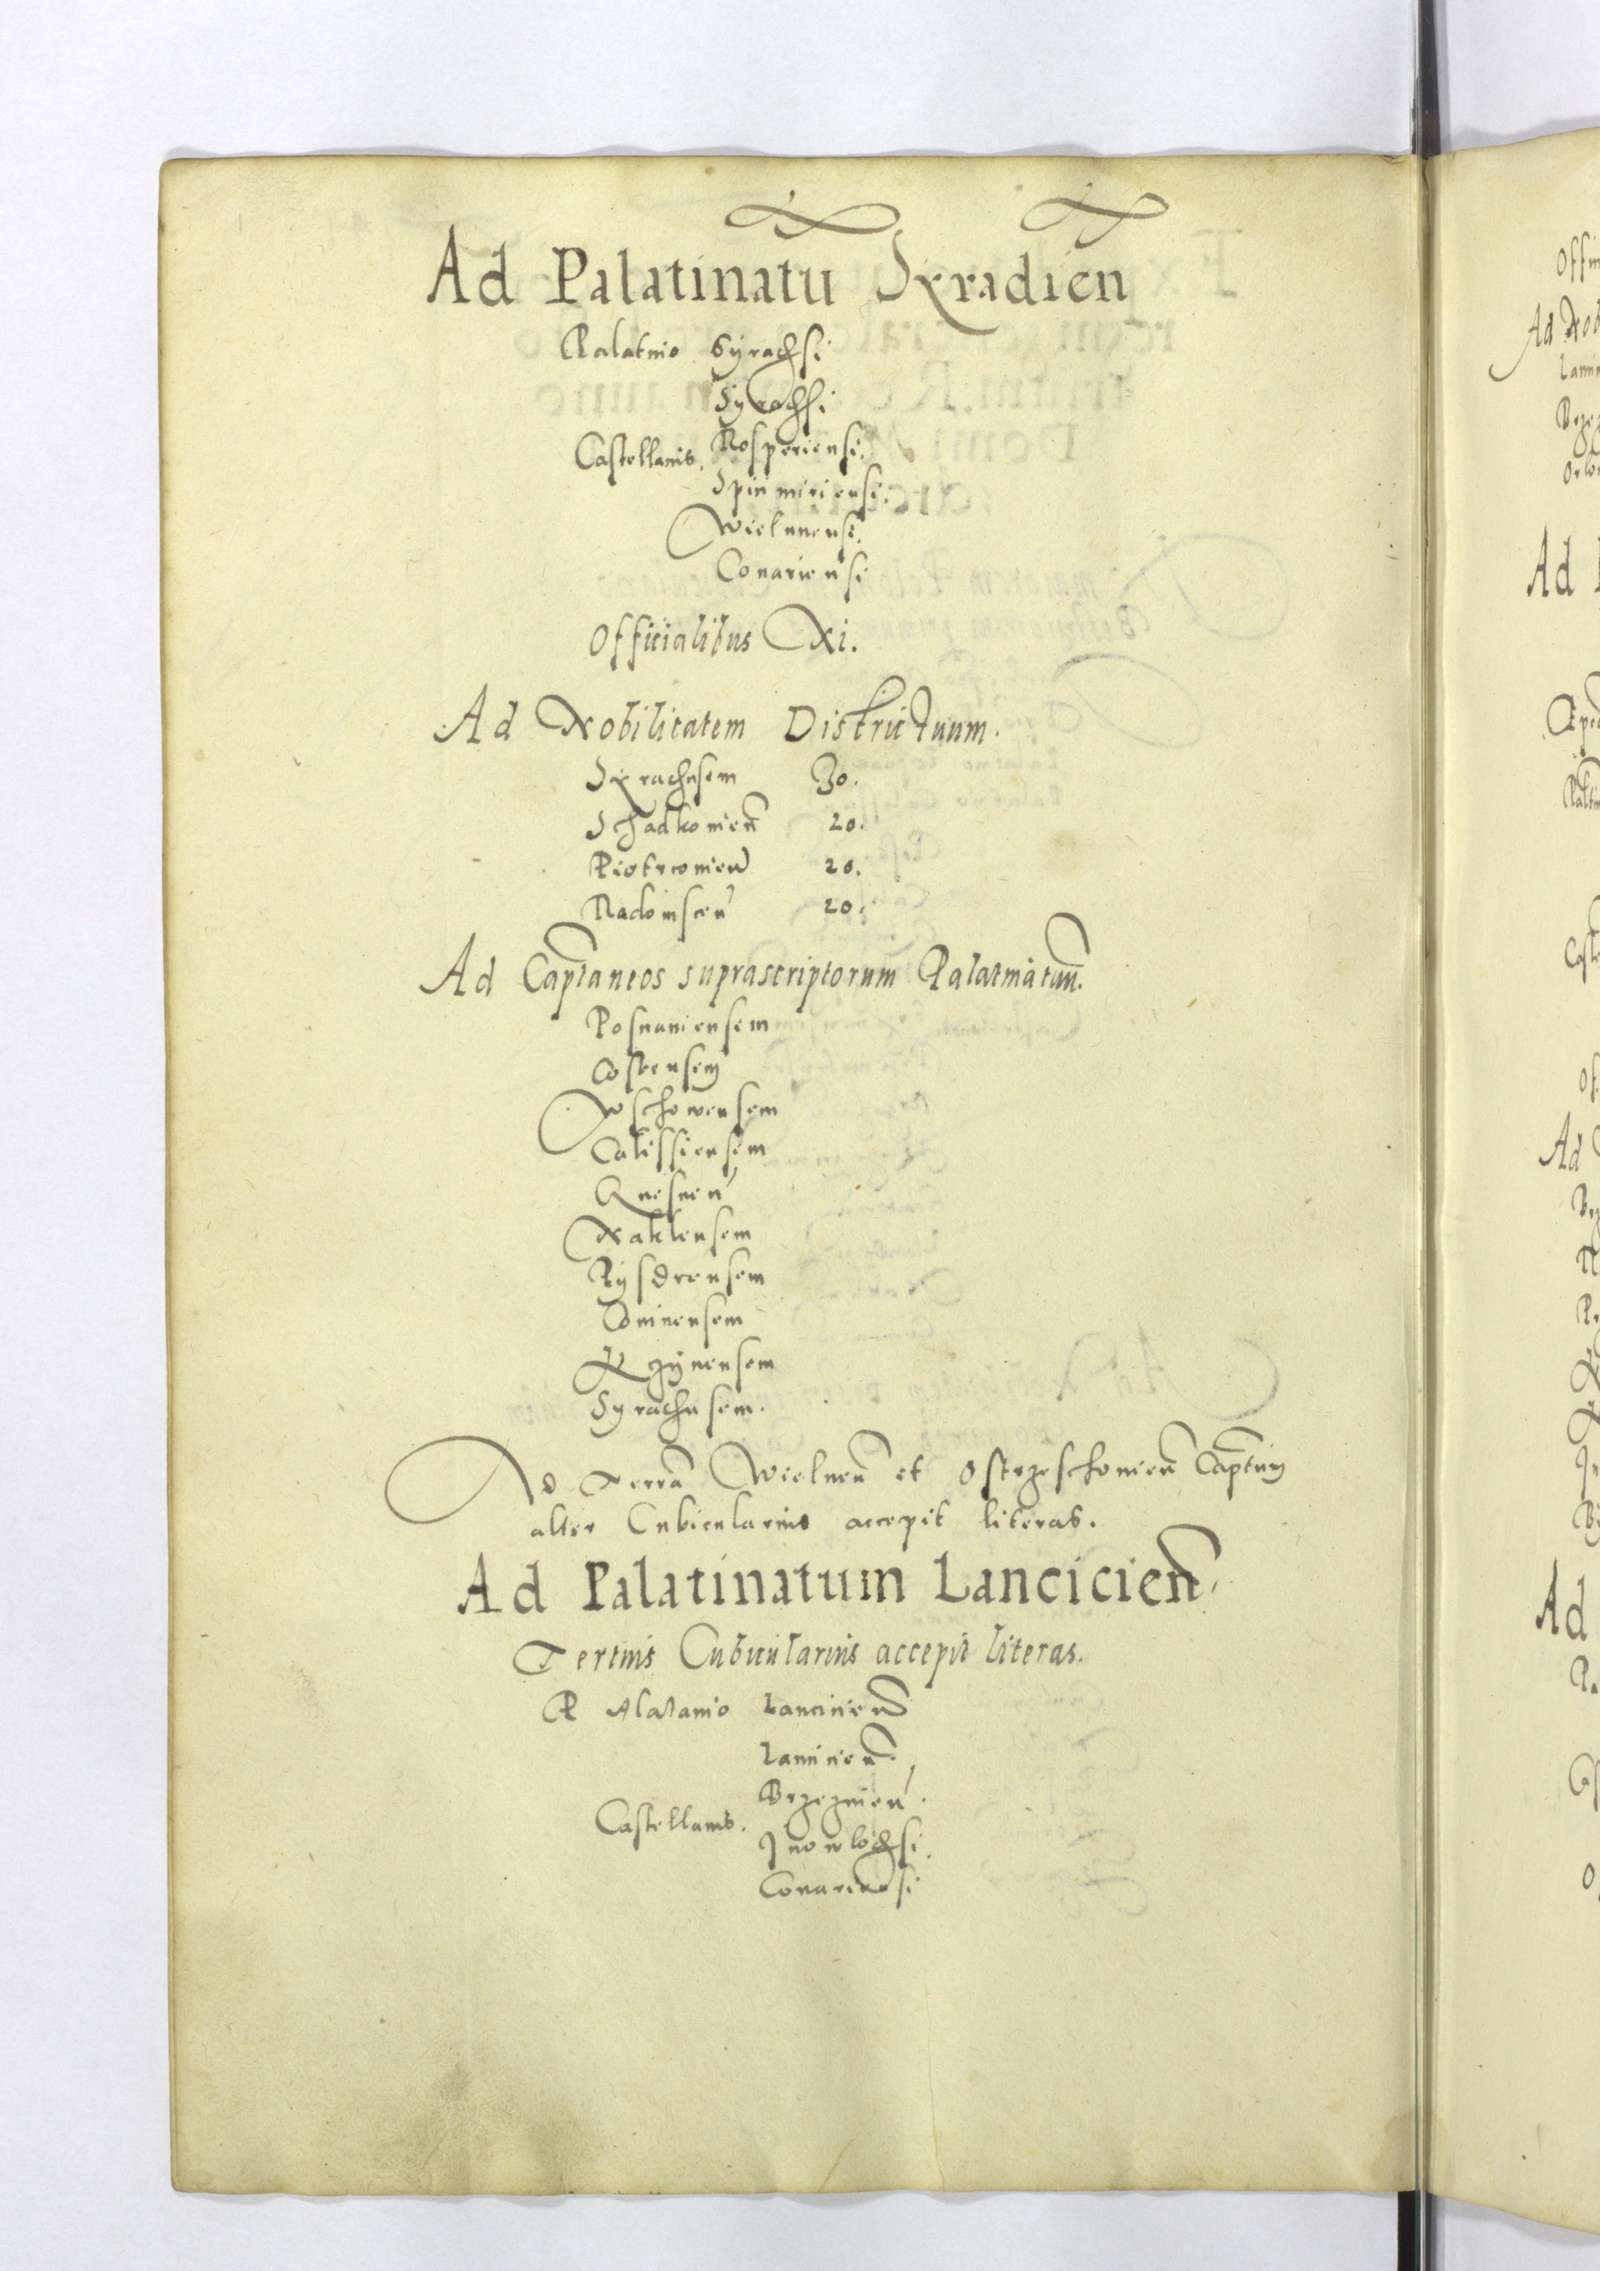 Ad Palatinatu Syradien
Palatino Syrachsi
Syrachsi
Castellanis. Rosperiensi.
Spinmiriensi.
Wielunensi.
Conariensi
Officialibus XI.
Ad Nobilitatem Districtuum.
Syrachnsem 30.
Schadkonien 20.
Piotrconien 20.
Radomscen 20.
Ad Captaneos suprascriptorum Palatinatuu.
Posnaniensem
Costensem
Wschowensem
Calissiensem
Gnesnen
Naklensem
Pysdrensem
Coninensem
Kczynensem
Syrachnsem.
Ad Terra Wielunen et Ostrzeschonien Captum
alter Cubicularius accepit literas.
Ad Palatinatum Lancicien
Tertius Cubicularius accepit literas.
Palatino Lancicien
Lancicien.
Brzezinien.
Castellanis.
Inowlochsi.
Conariensi